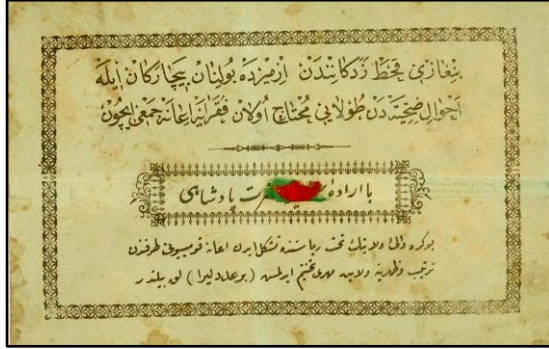 بنغازى قحط زدكانندن ازميرده بولنان بيچاركان ايله
احوال صحيه دن طولايى محتاج اولان فقرايه اعانه جمعى ايچون
با ارادهٔ حضرت پادشاهى
بو كره والئ ولايتك تحت رياستنده تشكل ايدن اعانه قوميسيونى طرفندن
ترتيب وظهرينه ولايت مهرى تختيم ايدلمش (بر عدد ليرا) لق بيلتدر